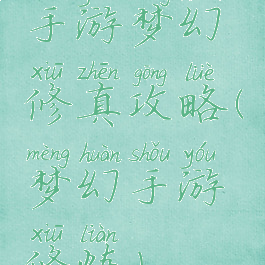 手游梦幻
xiū zhēn gōng lüè
修真攻略(
mèng huàn shǒu yóu
梦幻手游
xiū liàn
修炼)